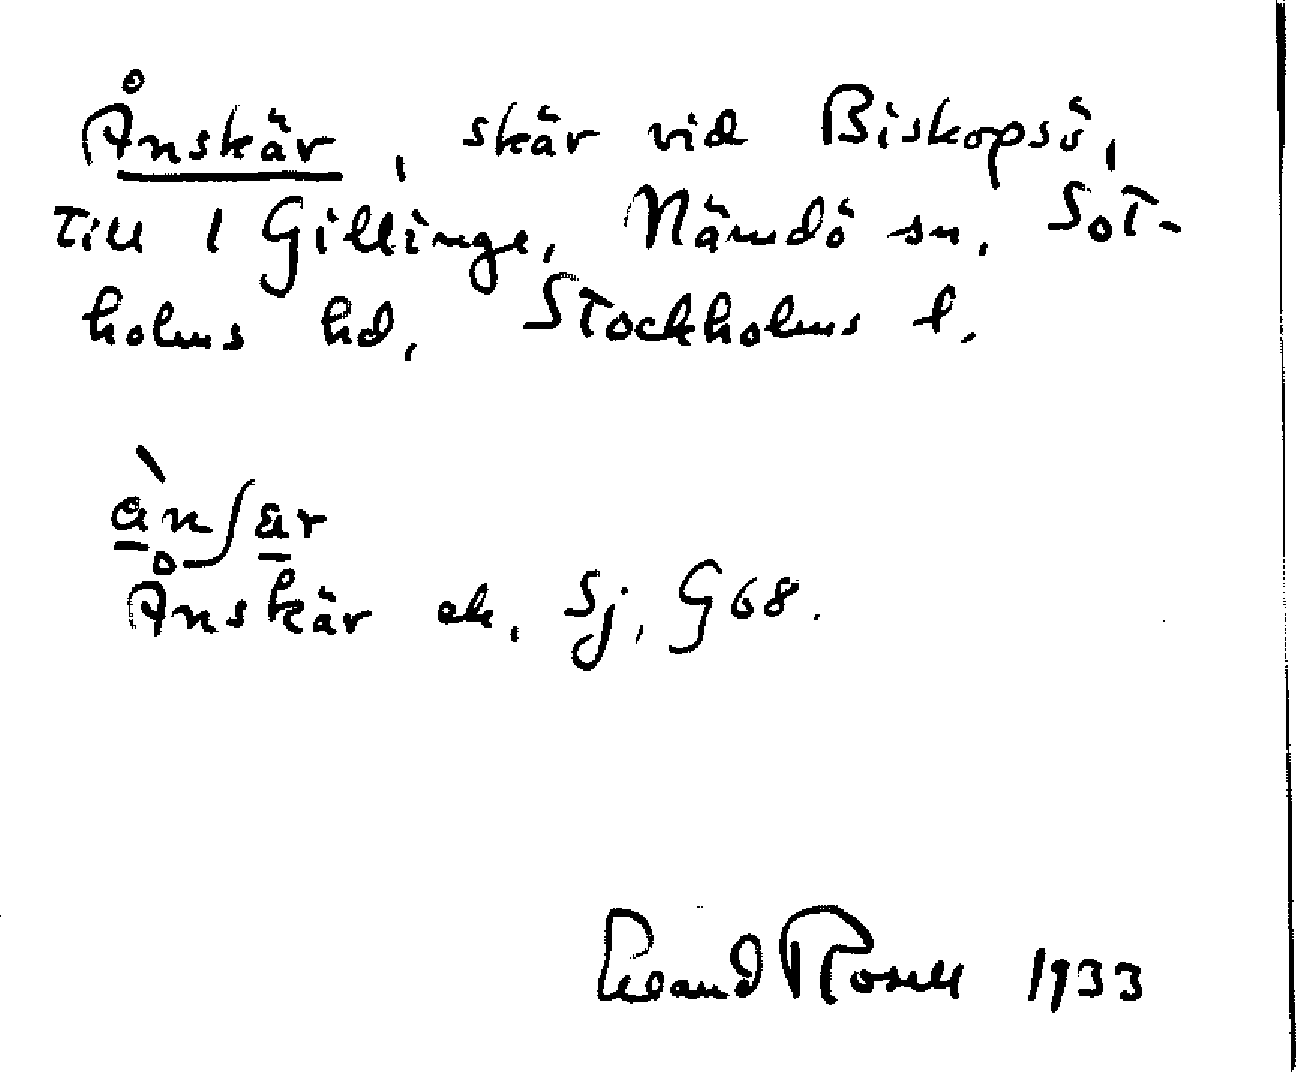 Ånskär, skär vid Biskopsö,
till 1 Gillinge, Nämdö sn, Sot-
holms hd, Stockholms l.
ànʃär
Ånskär ek. Sj. G 68.
Erland Rosell 1933